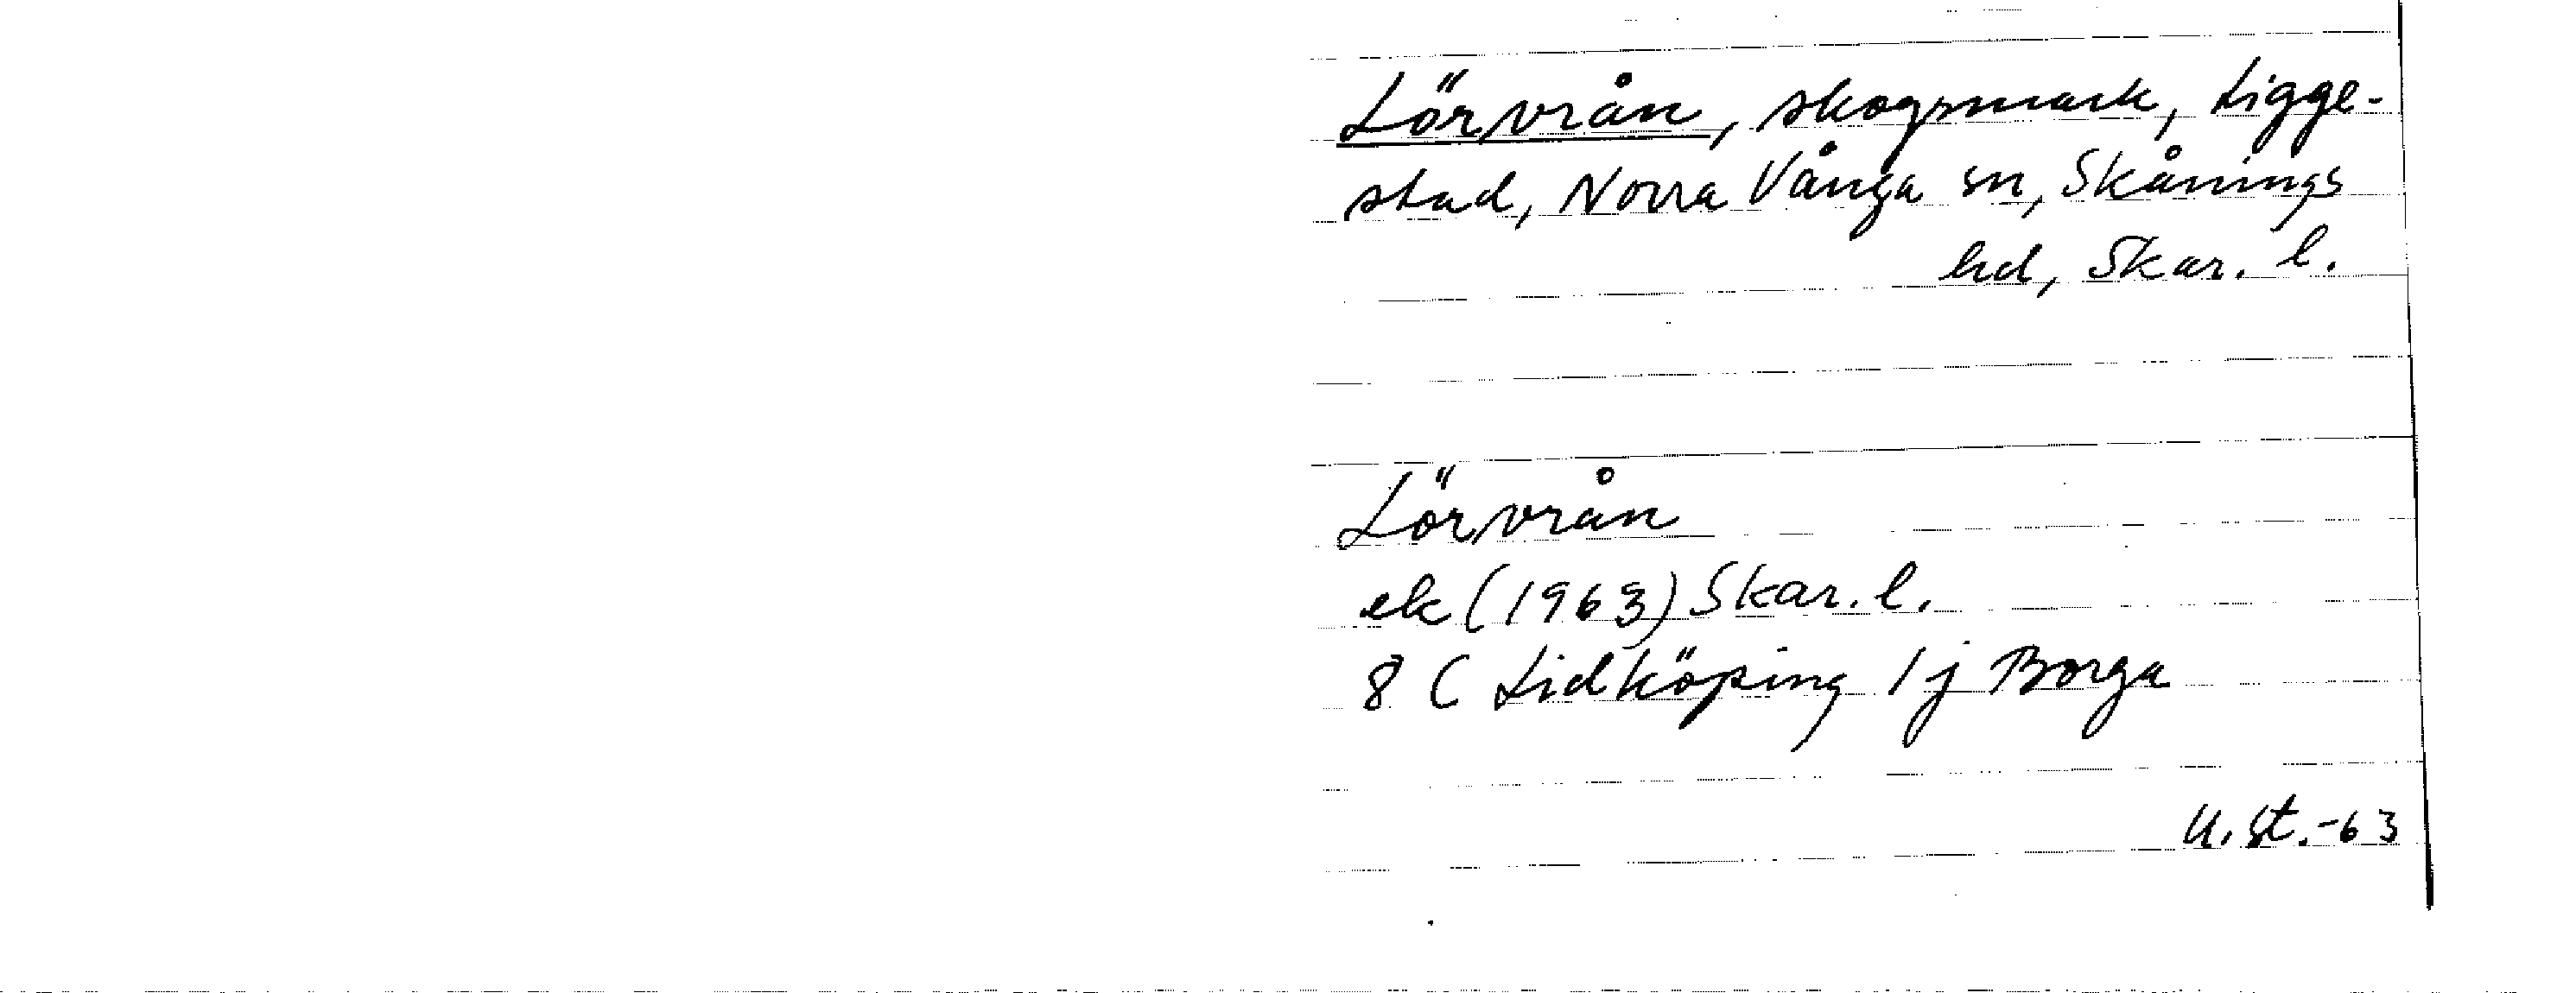 Lörvrån, skogsmark, Ligge-
stad, Norra Vånga sn, Skånings
hd, Skar. l.
Lörvrån
ek (1963) Skar. l.
8 C Lidköping 1 j Borga
U. St. -63